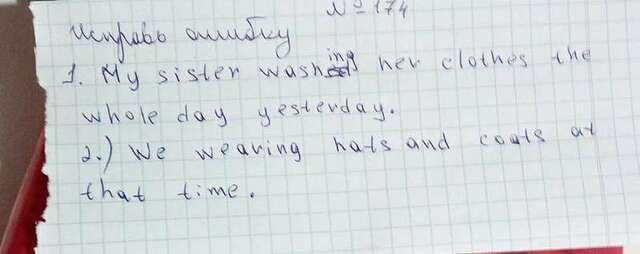 № 174
Исправь ошибку
1. My sister washing her clothes the
whole day yesterday.
2.) We wearing hats and coats at
that time.